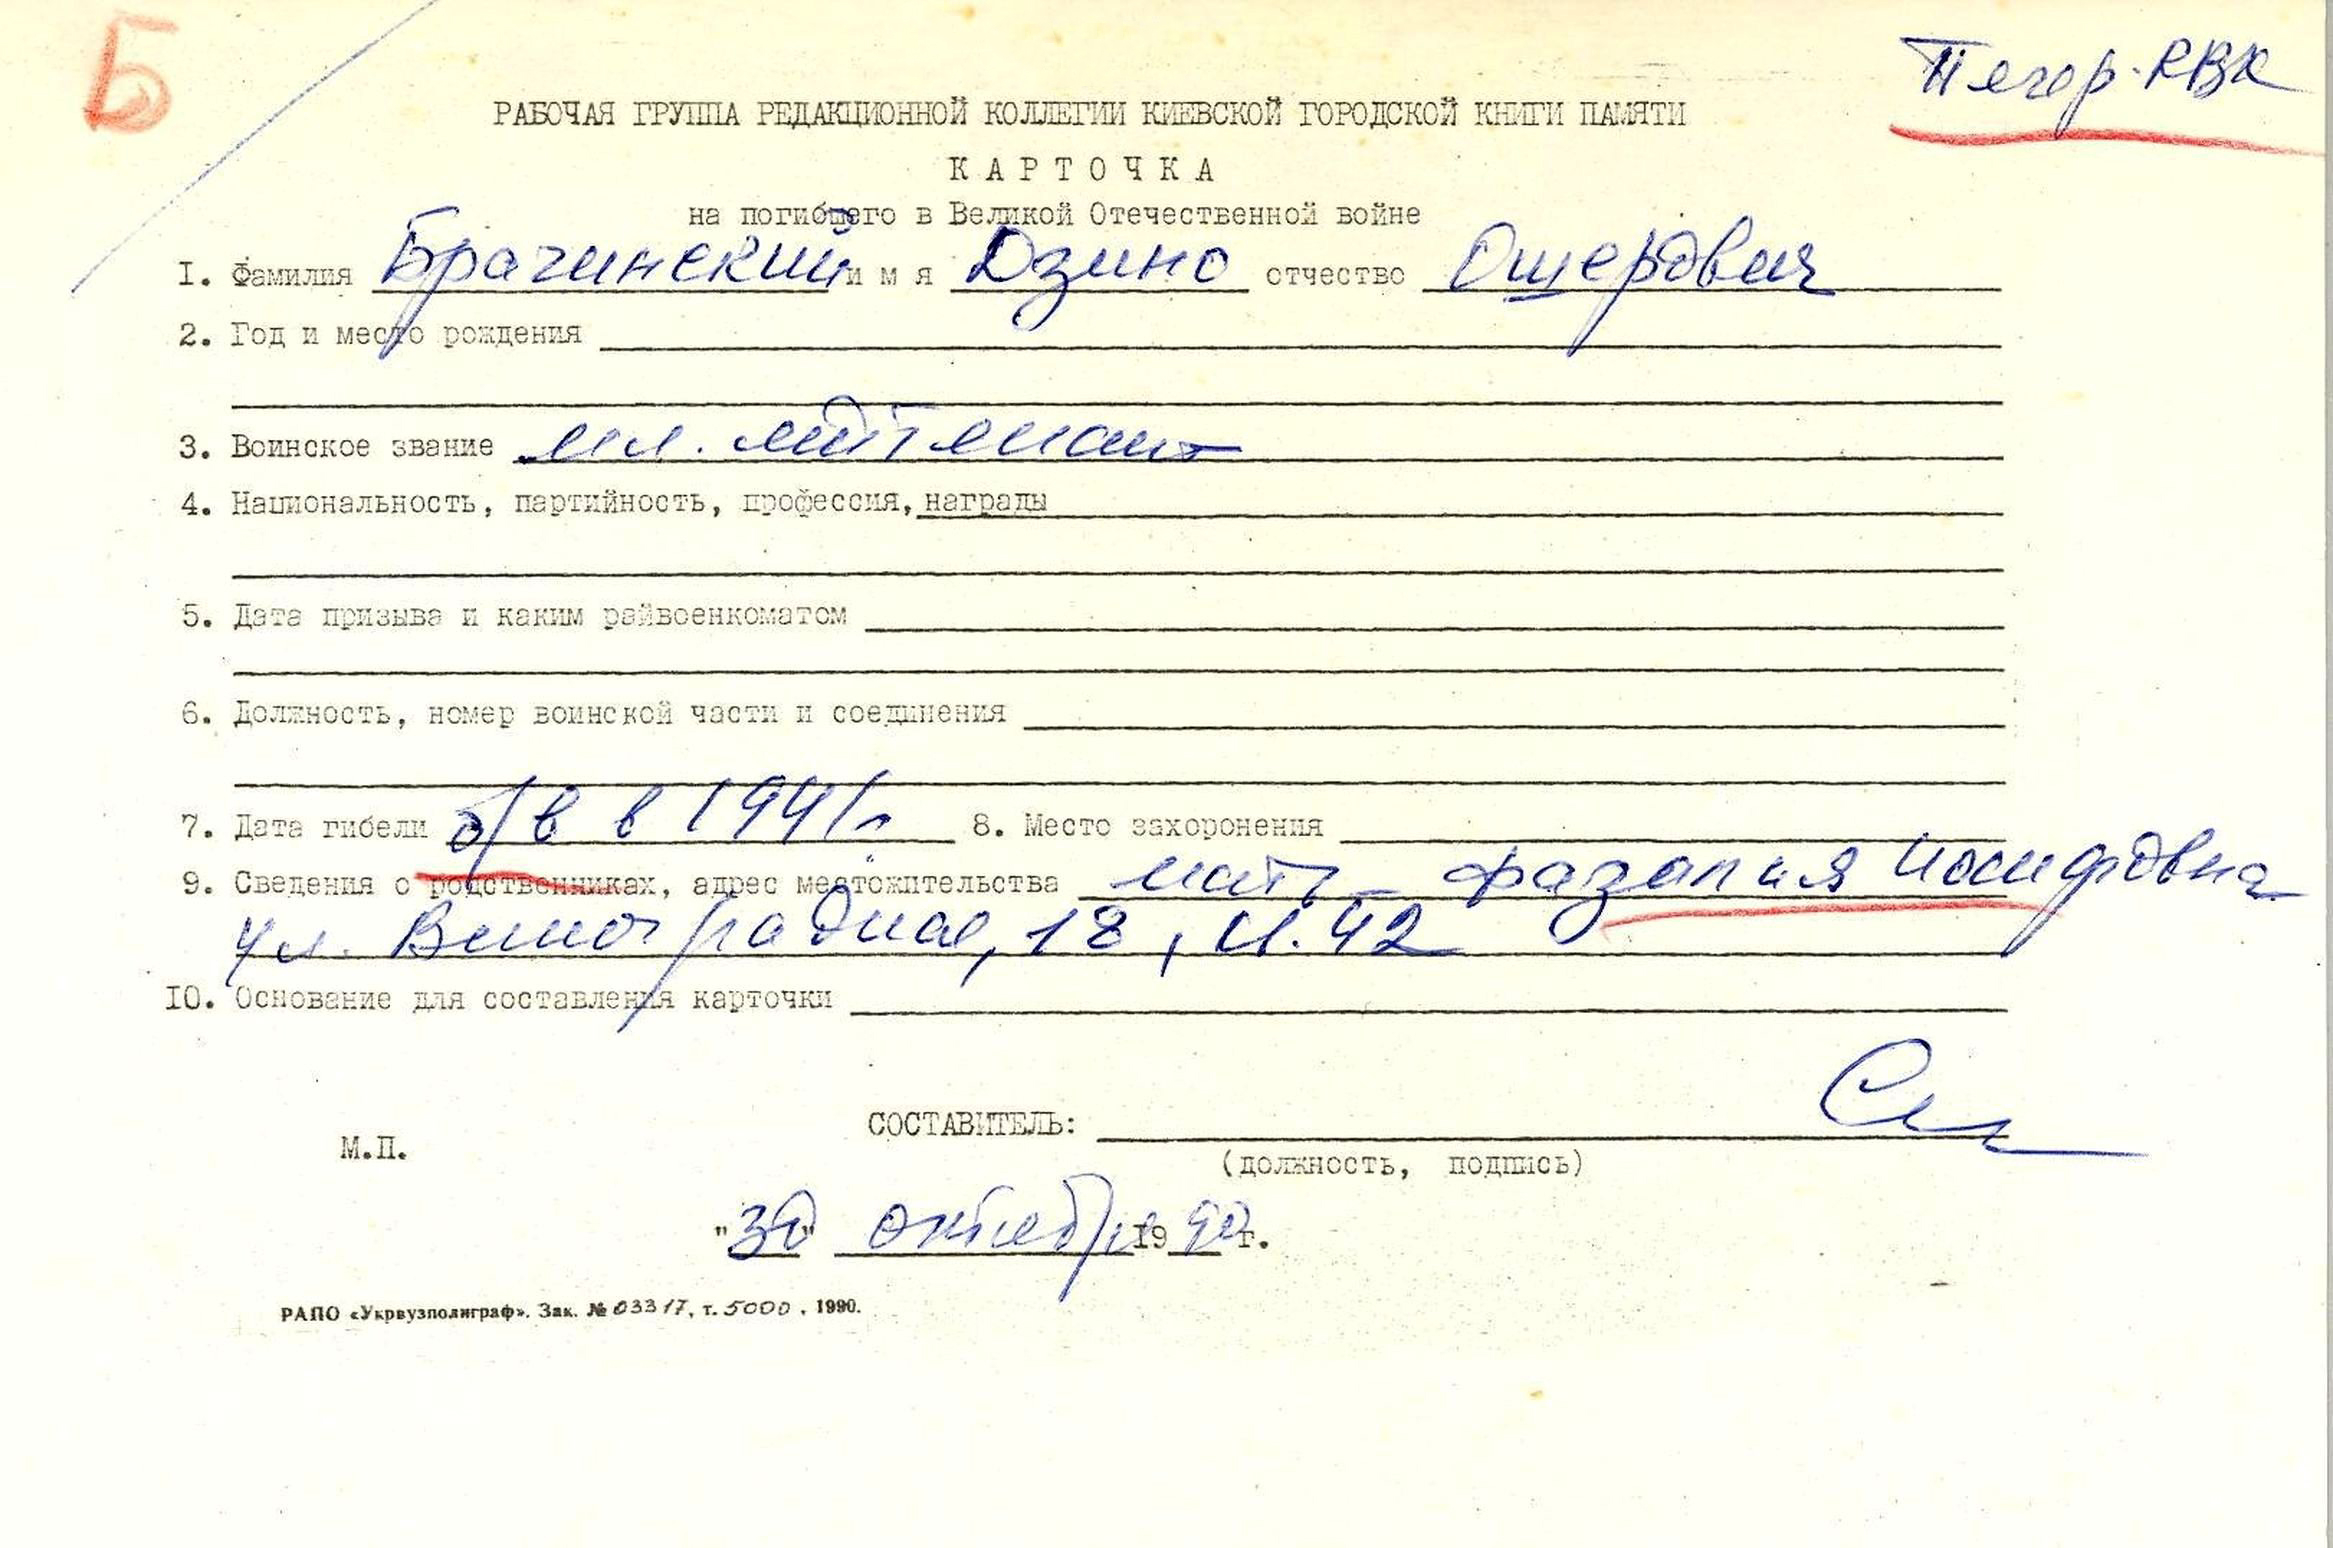 Б
Печер. РВК
РАБОЧАЯ ГРУППА РЕДАКЦИОННОЙ КОЛЛЕГИИ КИЕВСКОЙ ГОРОДСКОЙ КНИГИ ПАМЯТИ
КАРТОЧКА
на погибшего в Великой Отечественной войне
I. Фамилия Брачинский имя Дзино отчество Ошерович
2. Год и место рождения
3. Воинское звание мл. лейтенант
4. Национальность, партийность, профессия, награды
5. Дата призыва и каким райвоенкоматом
6. Должность, номер воинской части и соединения
7. Дата гибели б/в в 1941г 8. Место захоронения
9. Сведения о родственниках, адрес местожительства мать Иосифовна
ул. Виноградная, 18, 42
IO. Основание для составления карточки
СОСТАВИТЕЛЬ:
М.П.
(должность, подпись)
"30" октября 1990г.
РАПО «Укрвузполиграф». Зак. № 03317, т. 5000, 1990.